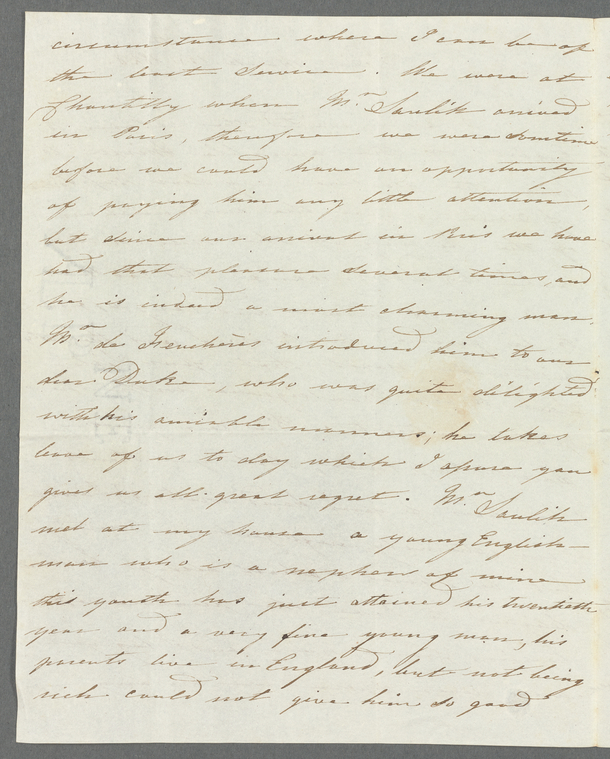 circumstance where I can be of
the least Service. We were at
Chantilly when Mr. Saulik arived
in Paris, therefore we were Sometime
before we could have an opportunity
of paying him any little attention,
but Since our arival in Paris we have
had that pleasure Several times, and
he is indeed a most charming man.
Mr. de Feuchères introduced him to our
dear Duke, who was quite delighted
with his amiable manners; he takes
leave of us to day which I asure you
gives us all great regret. Mr. Saulik
met at my house a young English-
man who is a nephew of mine
this youth has just attained his twentieth
year and a very fine young man, his
parents live in England, but not being
rich could not give him So good